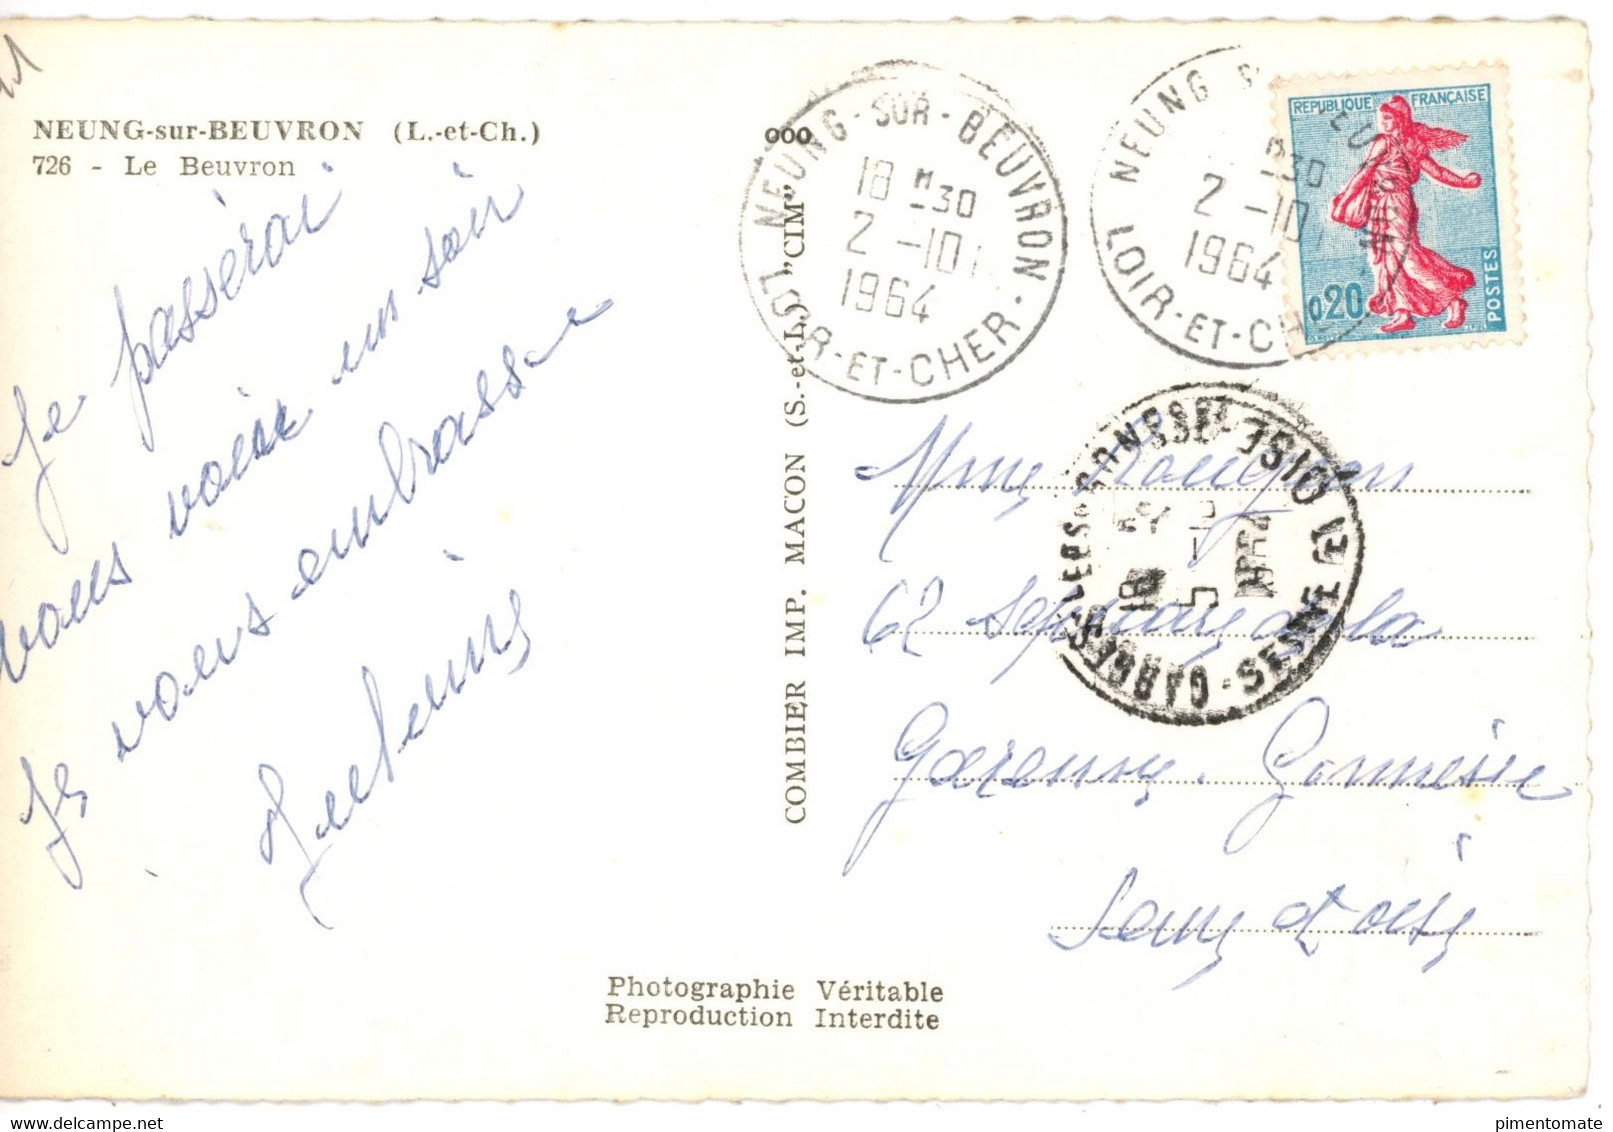 NEUNG-sur-BEUVRON (L.-et-Ch.)
726 - Le Beuvron
Je passerai
vous voir un soir
Je vous embrasse
COMBIER IMP. MACON (S.-et-L.) "CIM"
NEUNG-SUR-BEUVRON
18 H30
2 -10
1964
LOIR-ET-CHER
NEUNG S BEUVRON
H30
2 -10
1964
LOIR-ET-CHER
REPUBLIQUE FRANÇAISE
0,20
POSTES
GARGES LES GONESSE
SEINE ET OISE
18
5 -
Mme
62
de la
Garenne. Gonnesse
Seine et oise
Photographie Véritable
Reproduction Interdite
pimentomate